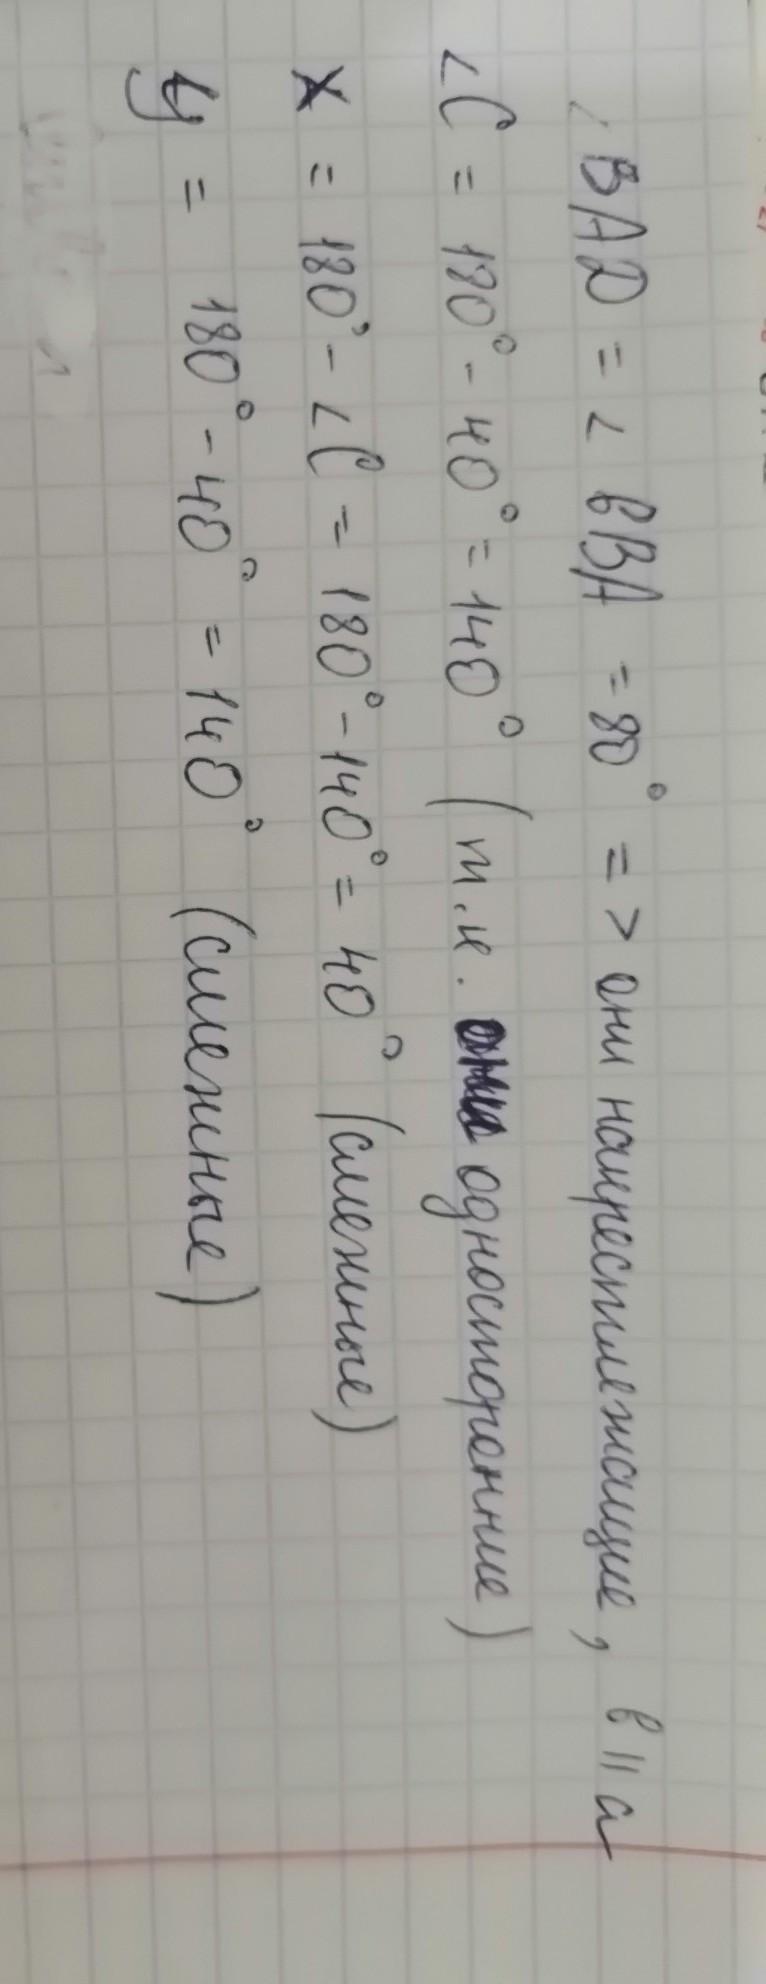 ∠BAD = ∠ вBA = 80° => они накрестлежащие, в || a
∠C = 180° - 40° = 140° (т.к. односторонние)
x = 180° - ∠C = 180° - 140° = 40° (смежные)
y = 180° - 40° = 140° (смежные)